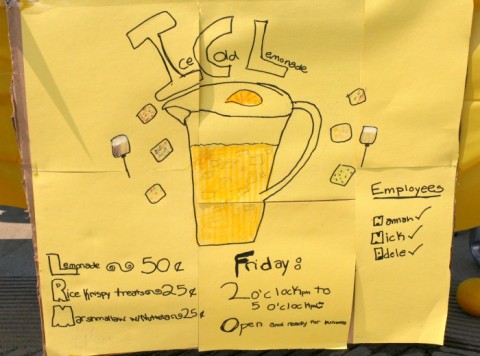 Ice Cold Lemonade
Lemonade 50¢
Rice Krispy treats 25¢
Marshmallow 25¢
Friday:
2 o'clock pm to
5 o'clock pm
Open and ready for business
Employees
Naman ✓
Nick ✓
Adele ✓